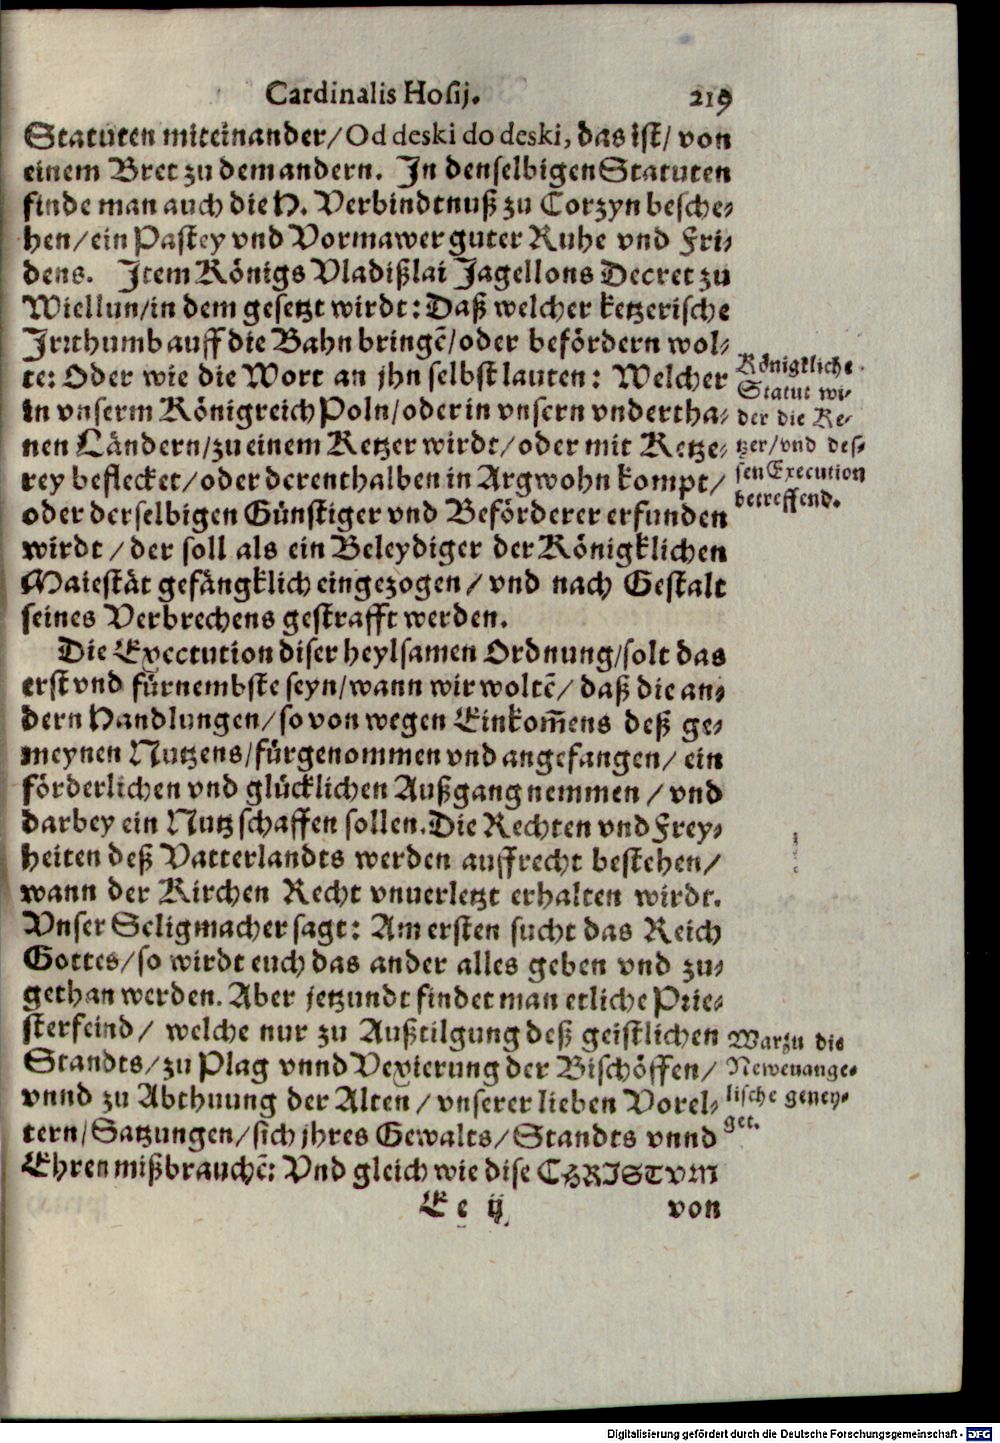 Cardinalis Hosij. 219
Statuten miteinander/Od deski do deski, das ist/ von
einem Bret zu dem andern. In denselbigen Statuten
finde man auch die H. Verbindtnuß zu Corzyn besche-
hen/ein Pastey vnd Vormawer guter Ruhe vnd Fri-
dens. Item Königs Vladißlai Jagellons Decret zu
Wiellun/in dem gesetzt wirdt: Daß welcher ketzerische
Irrthumb auff die Bahn bringẽ/oder befördern wol-
te: Oder wie die Wort an jhn selbst lauten: Welcher
in vnserm Königreich Poln/oder in vnsern vndertha-
nen Ländern/zu einem Ketzer wirdt/oder mit Ketze-
rey beflecket/oder derenthalben in Argwohn kompt/
oder derselbigen Günstiger vnd Beförderer erfunden
wirdt/der soll als ein Beleydiger der Königklichen
Maiestät gefängklich eingezogen/vnd nach Gestalt
seines Verbrechens gestrafft werden.
Königkliche
Statut wi-
der die Ke-
tzer/vnd des-
sen Execution
betreffend.
Die Execcution diser heylsamen Ordnung/solt das
erst vnd fürnembste seyn/wann wir woltẽ/daß die an-
dern Handlungen/so von wegen Einkom̃ens deß ge-
meynen Nutzens/fürgenommen vnd angefangen/ein
förderlichen vnd glücklichen Außgang nemmen/vnd
darbey ein Nutz schaffen sollen. Die Rechten vnd Frey-
heiten deß Vatterlandts werden auffrecht bestehen/
wann der Kirchen Recht vnuerletzt erhalten wirdt.
Vnser Seligmacher sagt: Am ersten sucht das Reich
Gottes/so wirdt euch das ander alles geben vnd zu-
gethan werden. Aber jetzundt findet man etliche Prie-
sterfeind/ welche nur zu Außtilgung deß geistlichen
Standts/zu Plag vnnd Vexierung der Bischöffen/
vnnd zu Abthuung der Alten/vnserer lieben Vorel-
tern/Satzungen/sich jhres Gewalts/Standts vnnd
Ehren mißbrauchẽ: Vnd gleich wie dise CHRISTVM
Warzu die
Neweuange-
lische geney-
get.
E e ij von
Digitalisierung gefördert durch die Deutsche Forschungsgemeinschaft - DFG